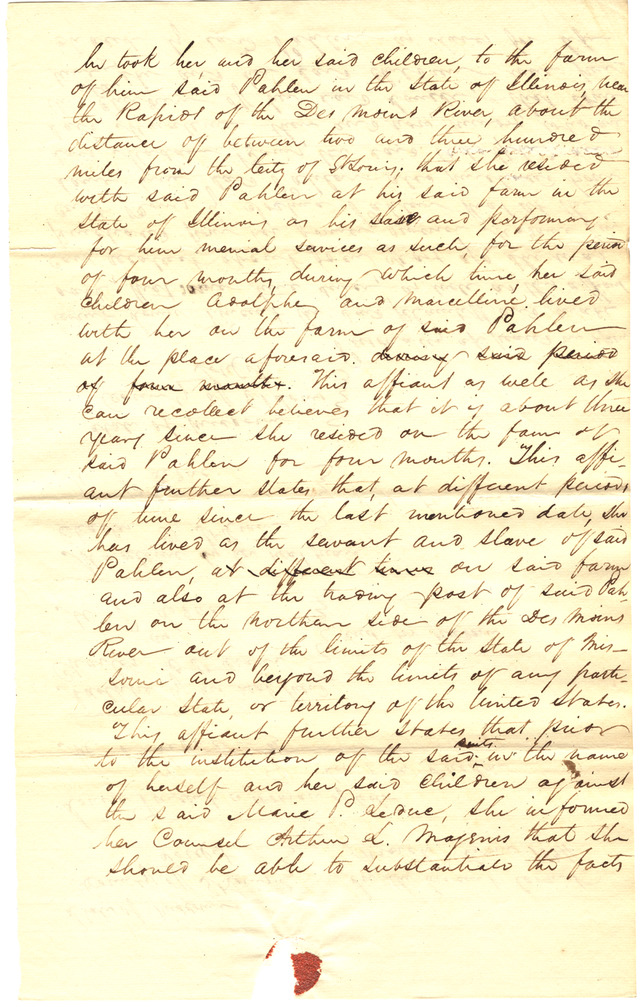 he took her and her said children, to the farm
of him said Pahlen in the State of Illinois, near
the Rapids of the Des moins River, about the
distance of between two and three hundred
miles from the City of St Louis; that she resided
with said Pahlen at his said farm in the
State of Illinois as his slave and performing
for him menial services as such, for the period
of four months, during which time, her said
children Adolphe, and Marcelline, lived
with her on the farm of said Pahlen
at the place aforesaid. during said period
of four months. This affiant as well as she
can recollect believes that it is about three
years since she resided on the farm of
said Pahlen for four months. This affi-
ant further states that, at different periods
of time since the last mentioned date, she
has lived as the servant and slave of said
Pahlen, at different times on said farm
and also at the trading post of said Pah-
len on the northern side of the Des Moins
River out of the limits of the State of Mis-
souri and beyond the limits of any parti-
cular State, or territory of the United States.
This affiant further states that prior
to the institution of the said suits in the name
of herself and her said children against
the said Marie P. Leduc, she informed
her Counsel Arthur L. Magenis that she
should be able to substantiate the facts